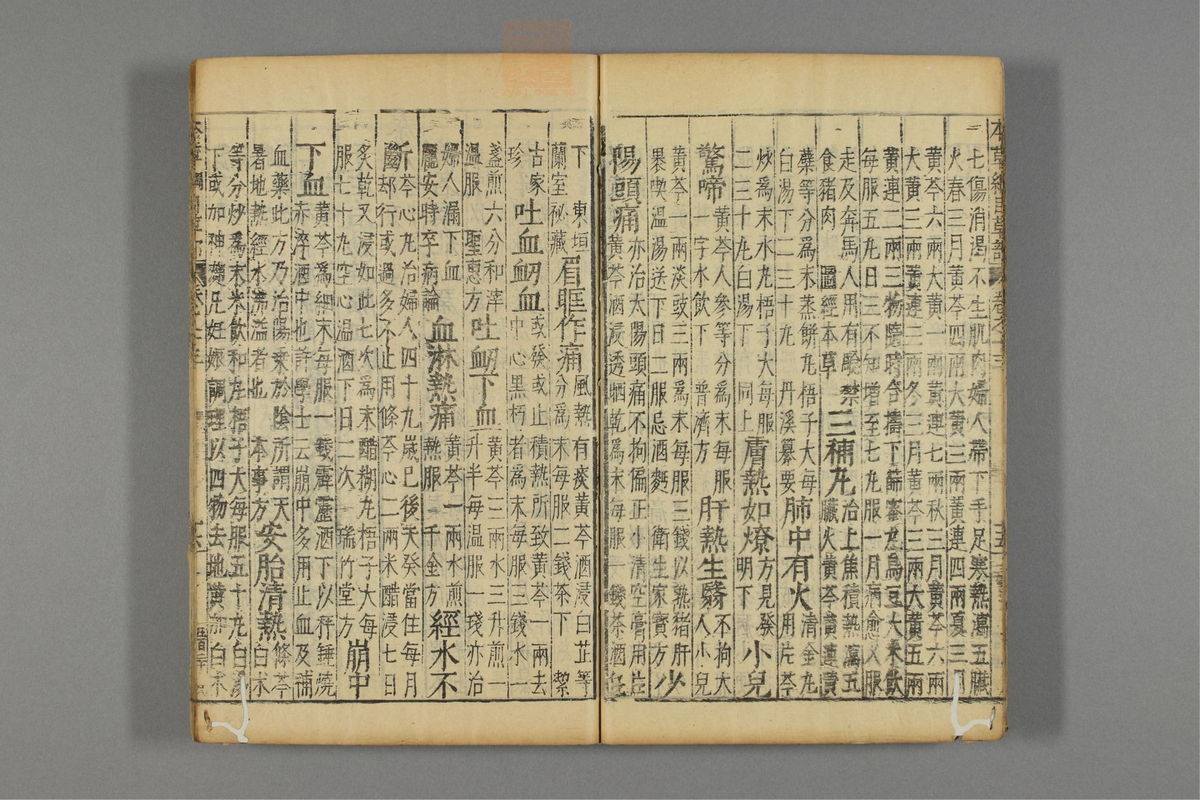 本草綱目草部 卷之十三 十五
七傷消渴不生肌肉婦人帶下手足寒熱瀉五臟
火春三月黃芩四兩大黃三兩黃連四兩夏三月
黃芩六兩大黃一兩黃連七兩秋三月黃芩六兩
大黃三兩黃連三兩冬三月黃芩三兩大黃五兩
黃連二兩三物隨時合擣下篩蜜丸烏豆大米飲
每服五丸日三不知增至七丸服一月病愈久服
走及奔馬人用有驗禁
食豬肉 圖經本草
三補丸
治上焦積熱瀉五
臟火黃芩黃連黃
蘗等分為末蒸餅丸梧子大每
白湯下二三十丸 丹溪纂要
肺中有火
清金丸
用片芩
炒為末水丸梧子大每服
二三十丸白湯下 同上
膚熱如燎
方見發
明下
小兒
驚啼
黃芩人參等分為末每服
一字水飲下 普濟方
肝熱生翳
不拘大
人小兒
黃芩一兩淡豉三兩為末每服三錢以熟猪肝
裹喫溫湯送下日二服忌酒麪 衛生家寶方
少
陽頭痛
亦治太陽頭痛不拘偏正小清空膏用片
黃芩酒浸透晒乾為末每服一錢茶酒任
下 東垣
蘭室祕藏
眉眶作痛
風熱有痰黃芩酒浸白芷等
分為末每服二錢茶下 潔
古家
珍
吐血衂血
或發或止積熱所致黃芩一兩去
中心黑朽者為末每服三錢水一
盞煎六分和滓
溫服 聖惠方
吐衂下血
黃芩三兩水三升煎一
升半每溫服一殘亦治
婦人漏下血
龐安時卒病論
血淋熱痛
黃芩一兩水煎
熱服 千金方
經水不
斷
芩心丸治婦人四十九歲已後天癸當住每月
却行或過多不止用條芩心二兩米醋浸七日
炙乾又浸如此七次為末醋糊丸梧子大每
服七十丸空心溫酒下日二次 瑞竹堂方
崩中
下血
黃芩為細末每服一錢霹靂酒下以秤錘燒
赤淬酒中也許學士云崩中多用止血及補
血藥此方乃治陽乘於陰所謂天
暑地熱經水沸溢者也 本事方
安胎清熱
條芩
白朮
等分炒為末米飲和丸梧子大每服五十丸白湯
下或加神麴凡妊娠調理以四物去地黃加白朮